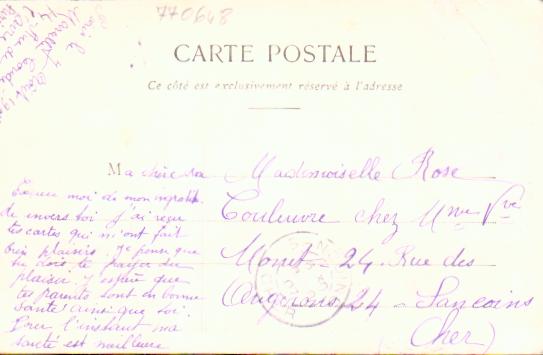 770648
CARTE POSTALE
Ce côté est exclusivement réservé à l'adresse
Ma chère
Mademoiselle Rose
Couleuvre chez Mme Vve
Monet - 24 Rue des
24 - Sancoins
(Cher)
Excuse moi de mon
de envers toi j'ai reçu
tes cartes qui m'ont fait
bien plaisirs. Je pense que
tu dois te payer du
plaisir j'espère que
tes parents sont en bonne
santé ainsi que toi.
Pour l'instant ma
santé est meilleure